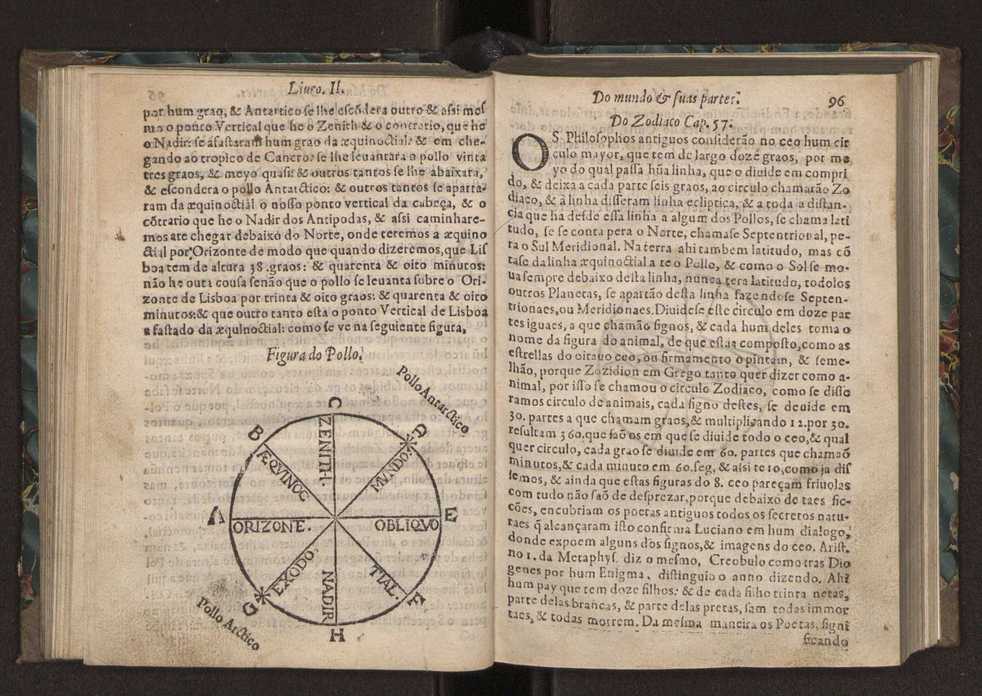 Liuro. II.
por hum grao, & Antartico se lhe escõdera outro & assi mes
mo o ponto Vertical que he o Zenith & o contrario, que he
o Nadir se afastaram hum grao da æquinoctial: & em che-
gando ao tropico de Cancro se lhe leuantara o pollo vinta
tres graos, & meyo quasi: & outros tantos se lhe abaixara,
& escondera o pollo Antarctico: & outros tantos se aparta-
ram da æquinoctial o nosso ponto vertical da cabeça, & o
cõtrario que he o Nadir dos Antipodas, & assi caminhare-
mos ate chegar debaixo do Norte, onde teremos a æquino
ctial por Orizonte de modo que quando dizemos, que Lis
boa tem de altura 38. graos: & quarenta & oito minutos:
não he outra cousa senão que o pollo se leuanta sobre o Ori-
zonte de Lisboa por trinta & oito graos: & quarenta & oito
minutos: & que outro tanto esta o ponto Vertical de Lisboa
afastado da æquinoctial: como se ve na seguinte figura.
Figura do Pollo.
Pollo Antarctico
C
B
D
ZENITH.
ÆQVINOC
MVNDO.
A
ORIZONE.
OBLIQVO
E
EXODO.
NADIR
TIAL.
G
F
H
Pollo Arctico
Do mundo & suas partes. 96
Do Zodiaco Cap. 57.
OS Philosophos antiguos considerão no ceo hum cir
culo mayor, que tem de largo doze graos, por me
yo do qual passa hũa linha, que o diuide em compri
do, & deixa a cada parte seis graos, ao circulo chamarão Zo
diaco, & à linha disseram linha ecliptica, & a toda a distan-
cia que ha desde essa linha a algum dos Pollos, se chama lati
tudo, se se conta pera o Norte, chamase Septentrional, pe-
ra o Sul Meridional. Na terra ahi tambem latitudo, mas cõ
tase da linha æquinoctial a te o Pollo, & como o Sol se mo-
ua sempre debaixo desta linha, nunca tera latitudo, todolos
outros Planetas, se apartão desta linha fazendose Septen-
trionaes, ou Meridionaes. Diuidese este circulo em doze par
tes iguaes, a que chamão signos, & cada hum deles toma o
nome da figura do animal, de que estaa composto, como as
estrellas do oitauo ceo, ou firmamento o pintem, & seme-
lhão, porque Zozidion em Grego tanto quer dizer como a-
nimal, por isso se chamou o circulo Zodiaco, como se disse
ramos circulo de animais, cada signo destes, se deuide em
30. partes a que chamam graos, & multiplicando 12. por 30.
resultam 360. que são os em que se diuide todo o ceo, & qual
quer circulo, cada grao se diuide em 60. partes que chamaõ
minutos, & cada minuto em 60. seg, & assi te 10, como ja dis
semos, & ainda que estas figuras do 8. ceo pareçam friuolas
com tudo não saõ de desprezar, porque debaixo de taes fic-
cões, encubriam os poetas antiguos todos os secretos natu-
raes q̃ alcançaram isto confirma Luciano em hum dialogo,
donde expoem alguns dos signos, & imagens do ceo. Arist.
no 1. da Metaphys. diz o mesmo, Creobulo como tras Dio
genes por hum Enigma, distinguio o anno dizendo. Ahi
hum pay que tem doze filhos: & de cada filho trinta netas,
parte delas brancas, & parte delas pretas, sam todas immor
taes, & todas morrem. Da mesma maneira os Poetas, signi
ficando